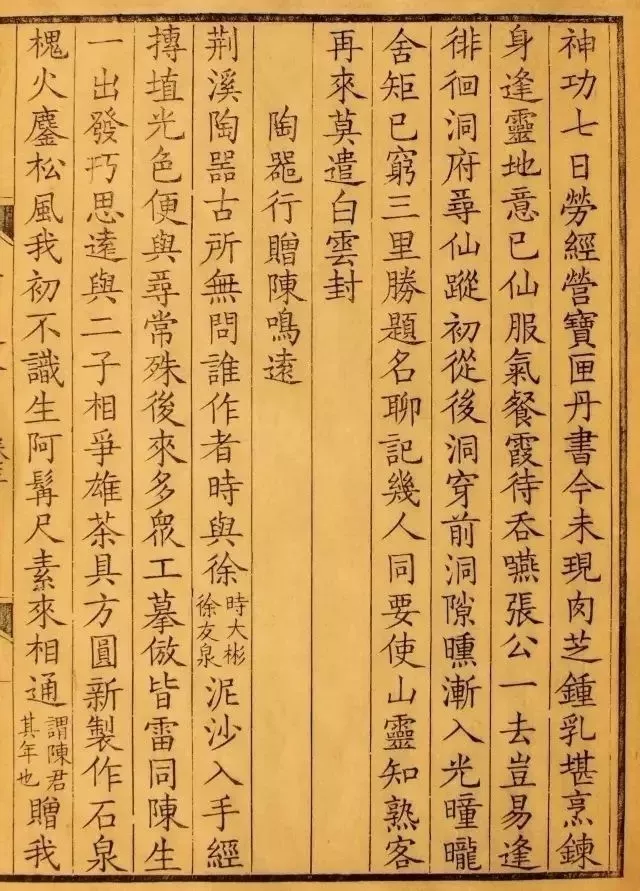 神功七日勞經營寶匣丹書今未現肉芝鍾乳堪烹鍊
身逢靈地意已仙服氣餐霞待吞嚥張公一去豈易逢
徘徊洞府尋仙蹤初從後洞穿前洞隙曛漸入光曈曨
舍矩已窮三里勝題名聊記幾人同要使山靈知熟客
再來莫遣白雲封
陶器行贈陳鳴遠
荆溪陶器古所無問誰作者時與徐時大彬徐友泉泥沙入手經
摶埴光色便與尋常殊後來多眾工摹倣皆雷同陳生
一出發巧思遠與二子相爭雄茶具方圓新製作石泉
槐火鏖松風我初不識生阿髯尺素來相通謂陳君其年也贈我